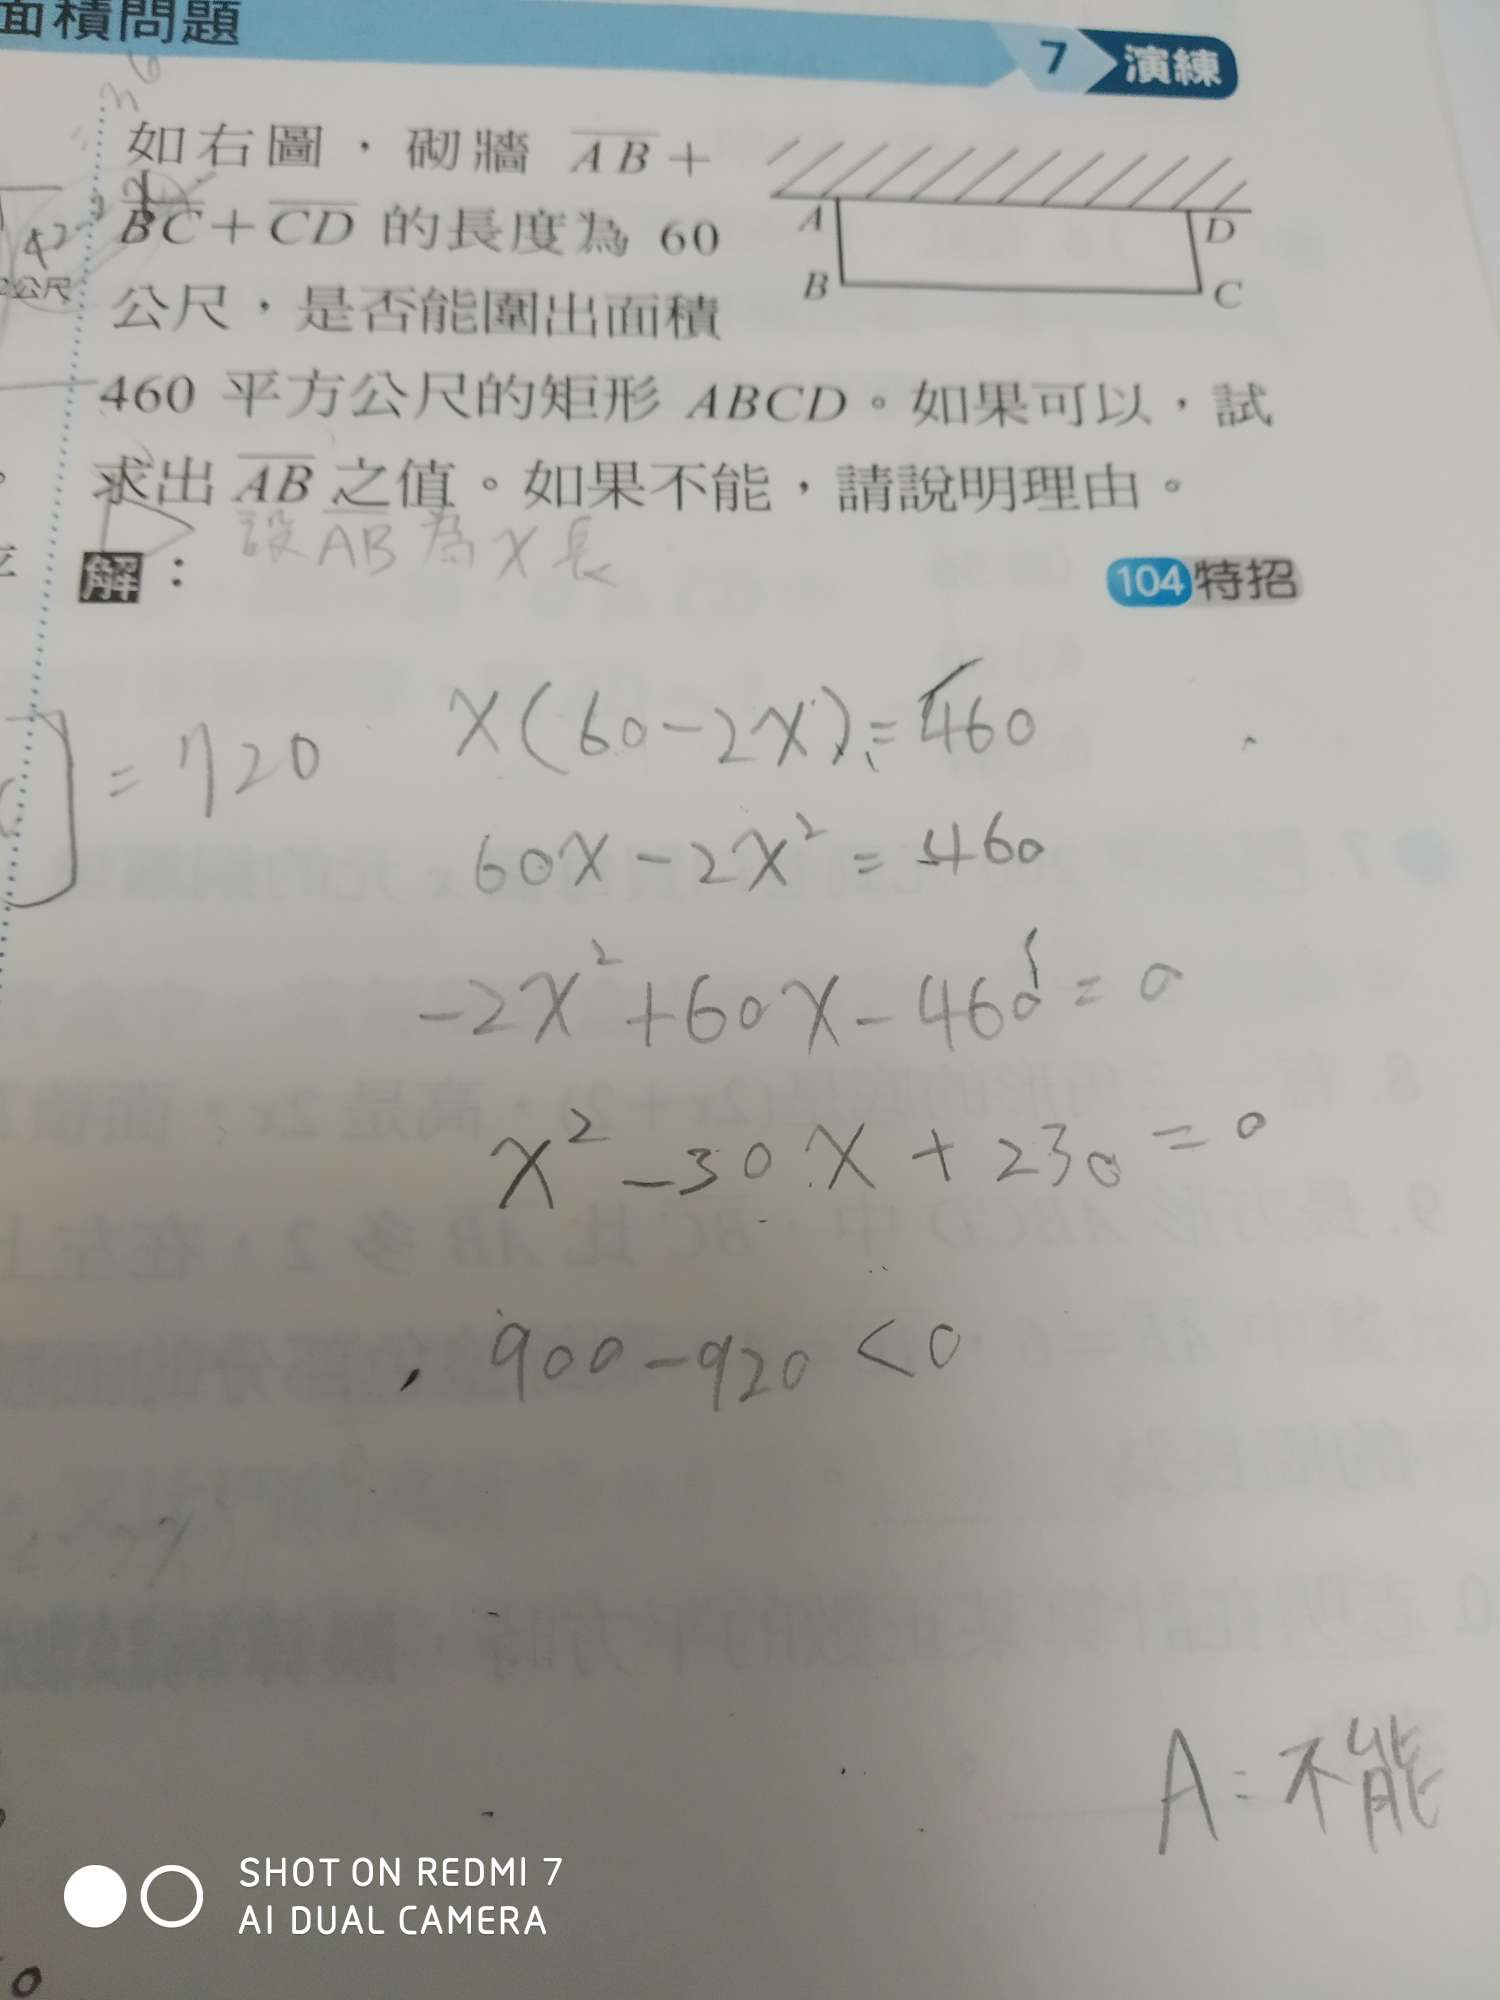 面積問題
7 演練
36
如右圖，砌牆 AB＋
BC＋CD 的長度為 60
公尺，是否能圍出面積
460 平方公尺的矩形 ABCD。如果可以，試
求出 AB 之值。如果不能，請說明理由。
A
B
D
C
公尺
設 AB 為 x 長
解：
104 特招
x(60-2x)=460
= 720
60x-2x²=460
-2x²+60x-460=0
x²-30x+230=0
900-920<0
A：不能
SHOT ON REDMI 7
AI DUAL CAMERA